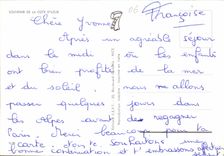 SOUVENIR DE LA COTE D'AZUR
Françoise
Chère Yvonne
Après un agréable séjour
dans le midi où les enfants
ont bien profité de la mer
et du soleil, nous allons
passer quelques jours dans
les Alpes avant de regagner
Paris. Merci beaucoup pour ta
carte d'
bonne continuation et t'embrassons